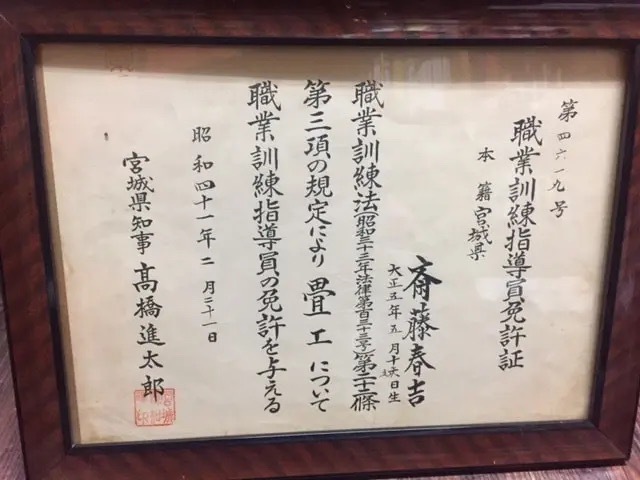 第四六一九号
職業訓練指導員免許証
本籍 宮城県
斎藤春吉
大正五年五月十六日生
職業訓練法(昭和三十三年法律第百三十三号)第二十二條
第三項の規定により畳工について
職業訓練指導員の免許を与える
昭和四十一年二月二十一日
宮城県知事 高橋進太郎